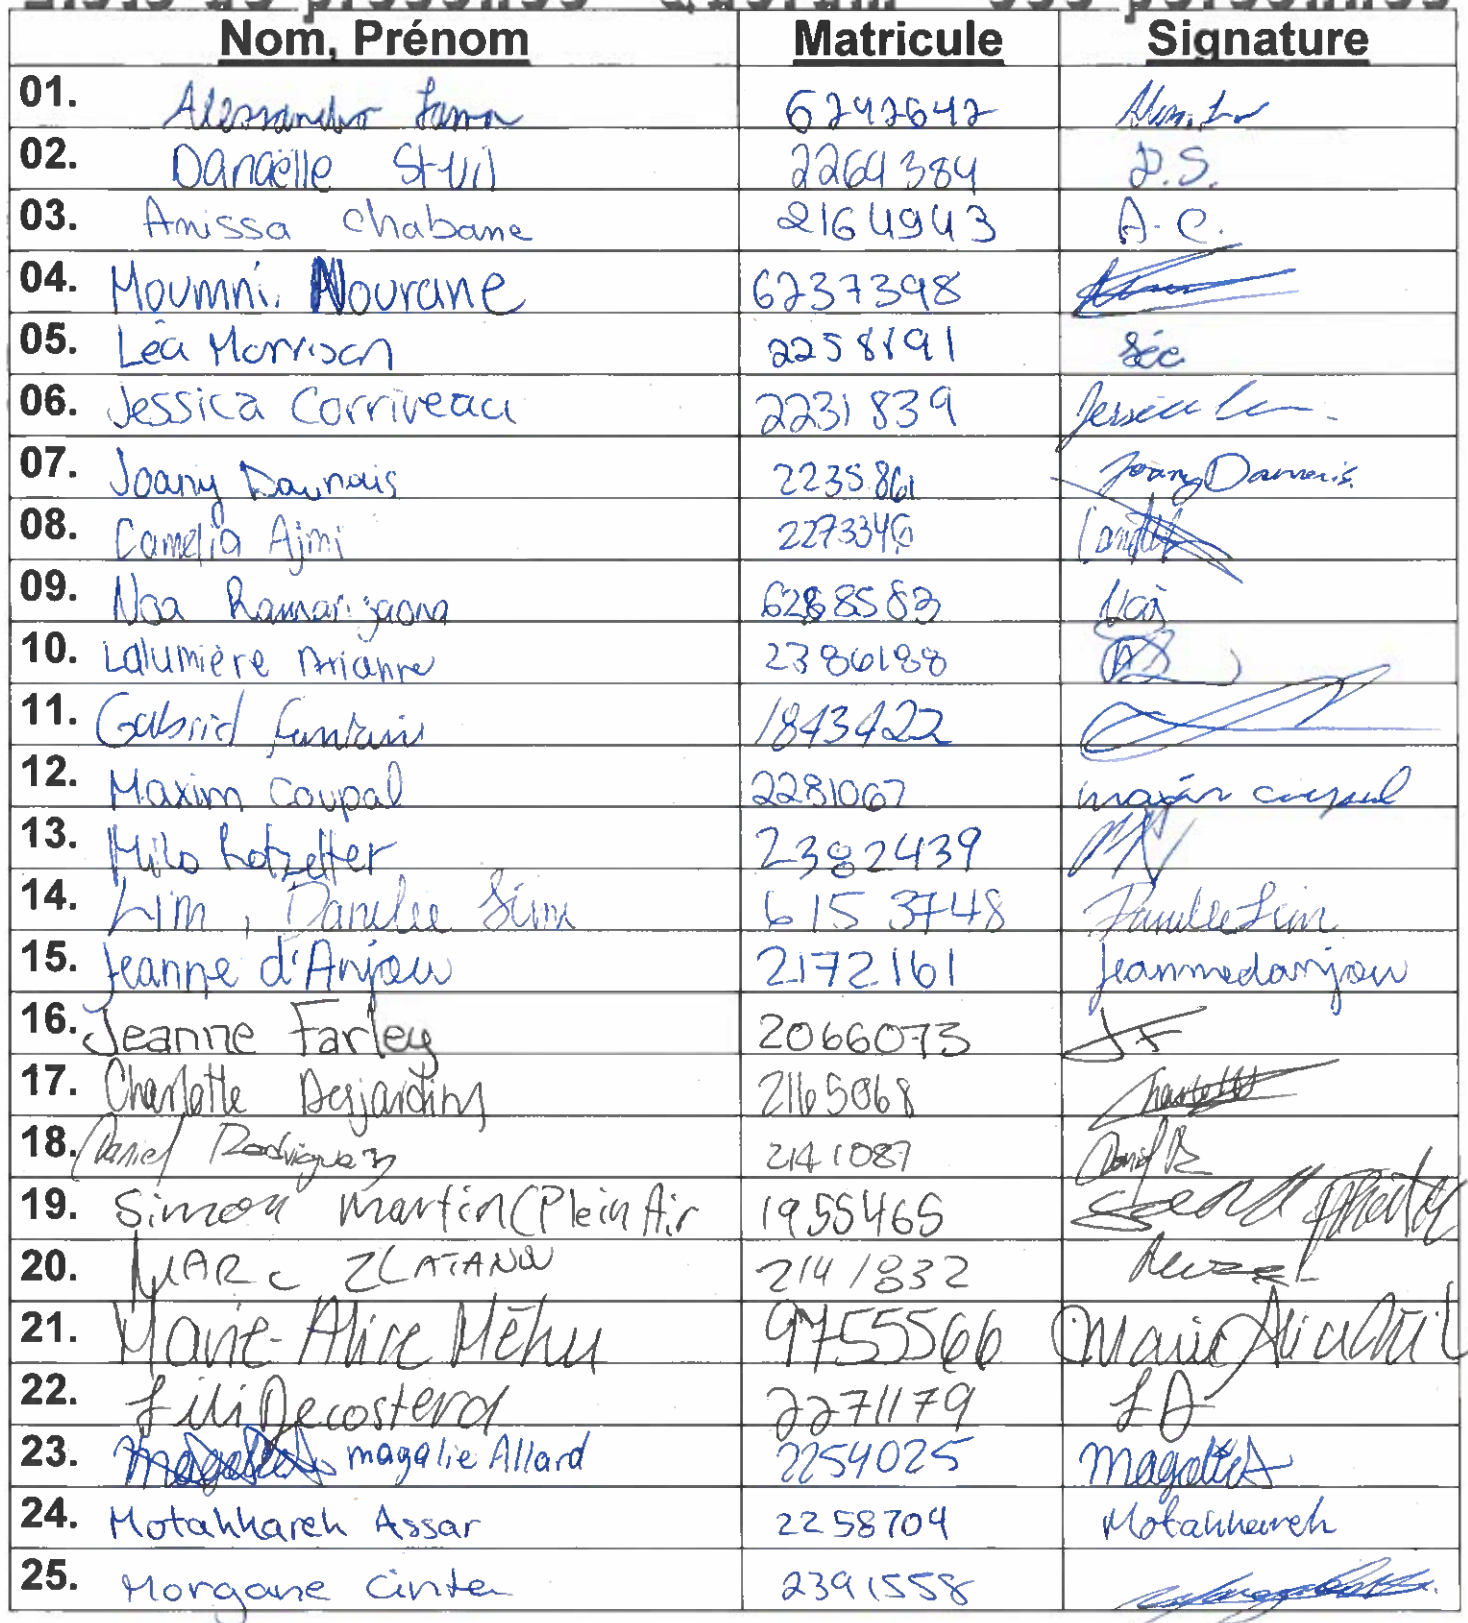 Liste de présence - Quorum - 350 personnes
Nom, Prénom Matricule Signature
01. Alessandro Lama 6242642
02. Danaëlle St-Vil 2264384 D.S.
03. Anissa Chabane 2164943 A.C.
04. Moumni, Nourane 6237398
05. Léa Morrison 2258191 Léa
06. Jessica Corriveau 2231839 Jessica
07. Joany Daunais 2235861 Joany Daunais
08. Camelia Ajmi 2273346
09. Noa Ramarijaona 6268583 Noa
10. Lalumière Arianne 2386188
11. Gabriel Fontaine 1843422
12. Maxim Coupal 2281067 maxim coupal
13. Milo Rotzetter 2382439
14. Lim, Danelee Lim 6153748 Danelee Lim
15. Jeanne d'Anjou 2172161 Jeannedanjou
16. Jeanne Farley 2066073 JF
17. Charlotte Desjardins 2165068 Charlotte
18. Daniel Rodriguez 2141087 Daniel R
19. Simon Martin (Plein Air 1955465
20. MARC ZLATANOV 2141832
21. Marie-Alice Méhu 9755566 Marie Alice
22. Lili Decosterd 2271179 LD
23. magalie Allard 2254025 Magalie A
24. Motahhareh Assar 2258704 Motahhareh
25. Morgane Cinter 2391558